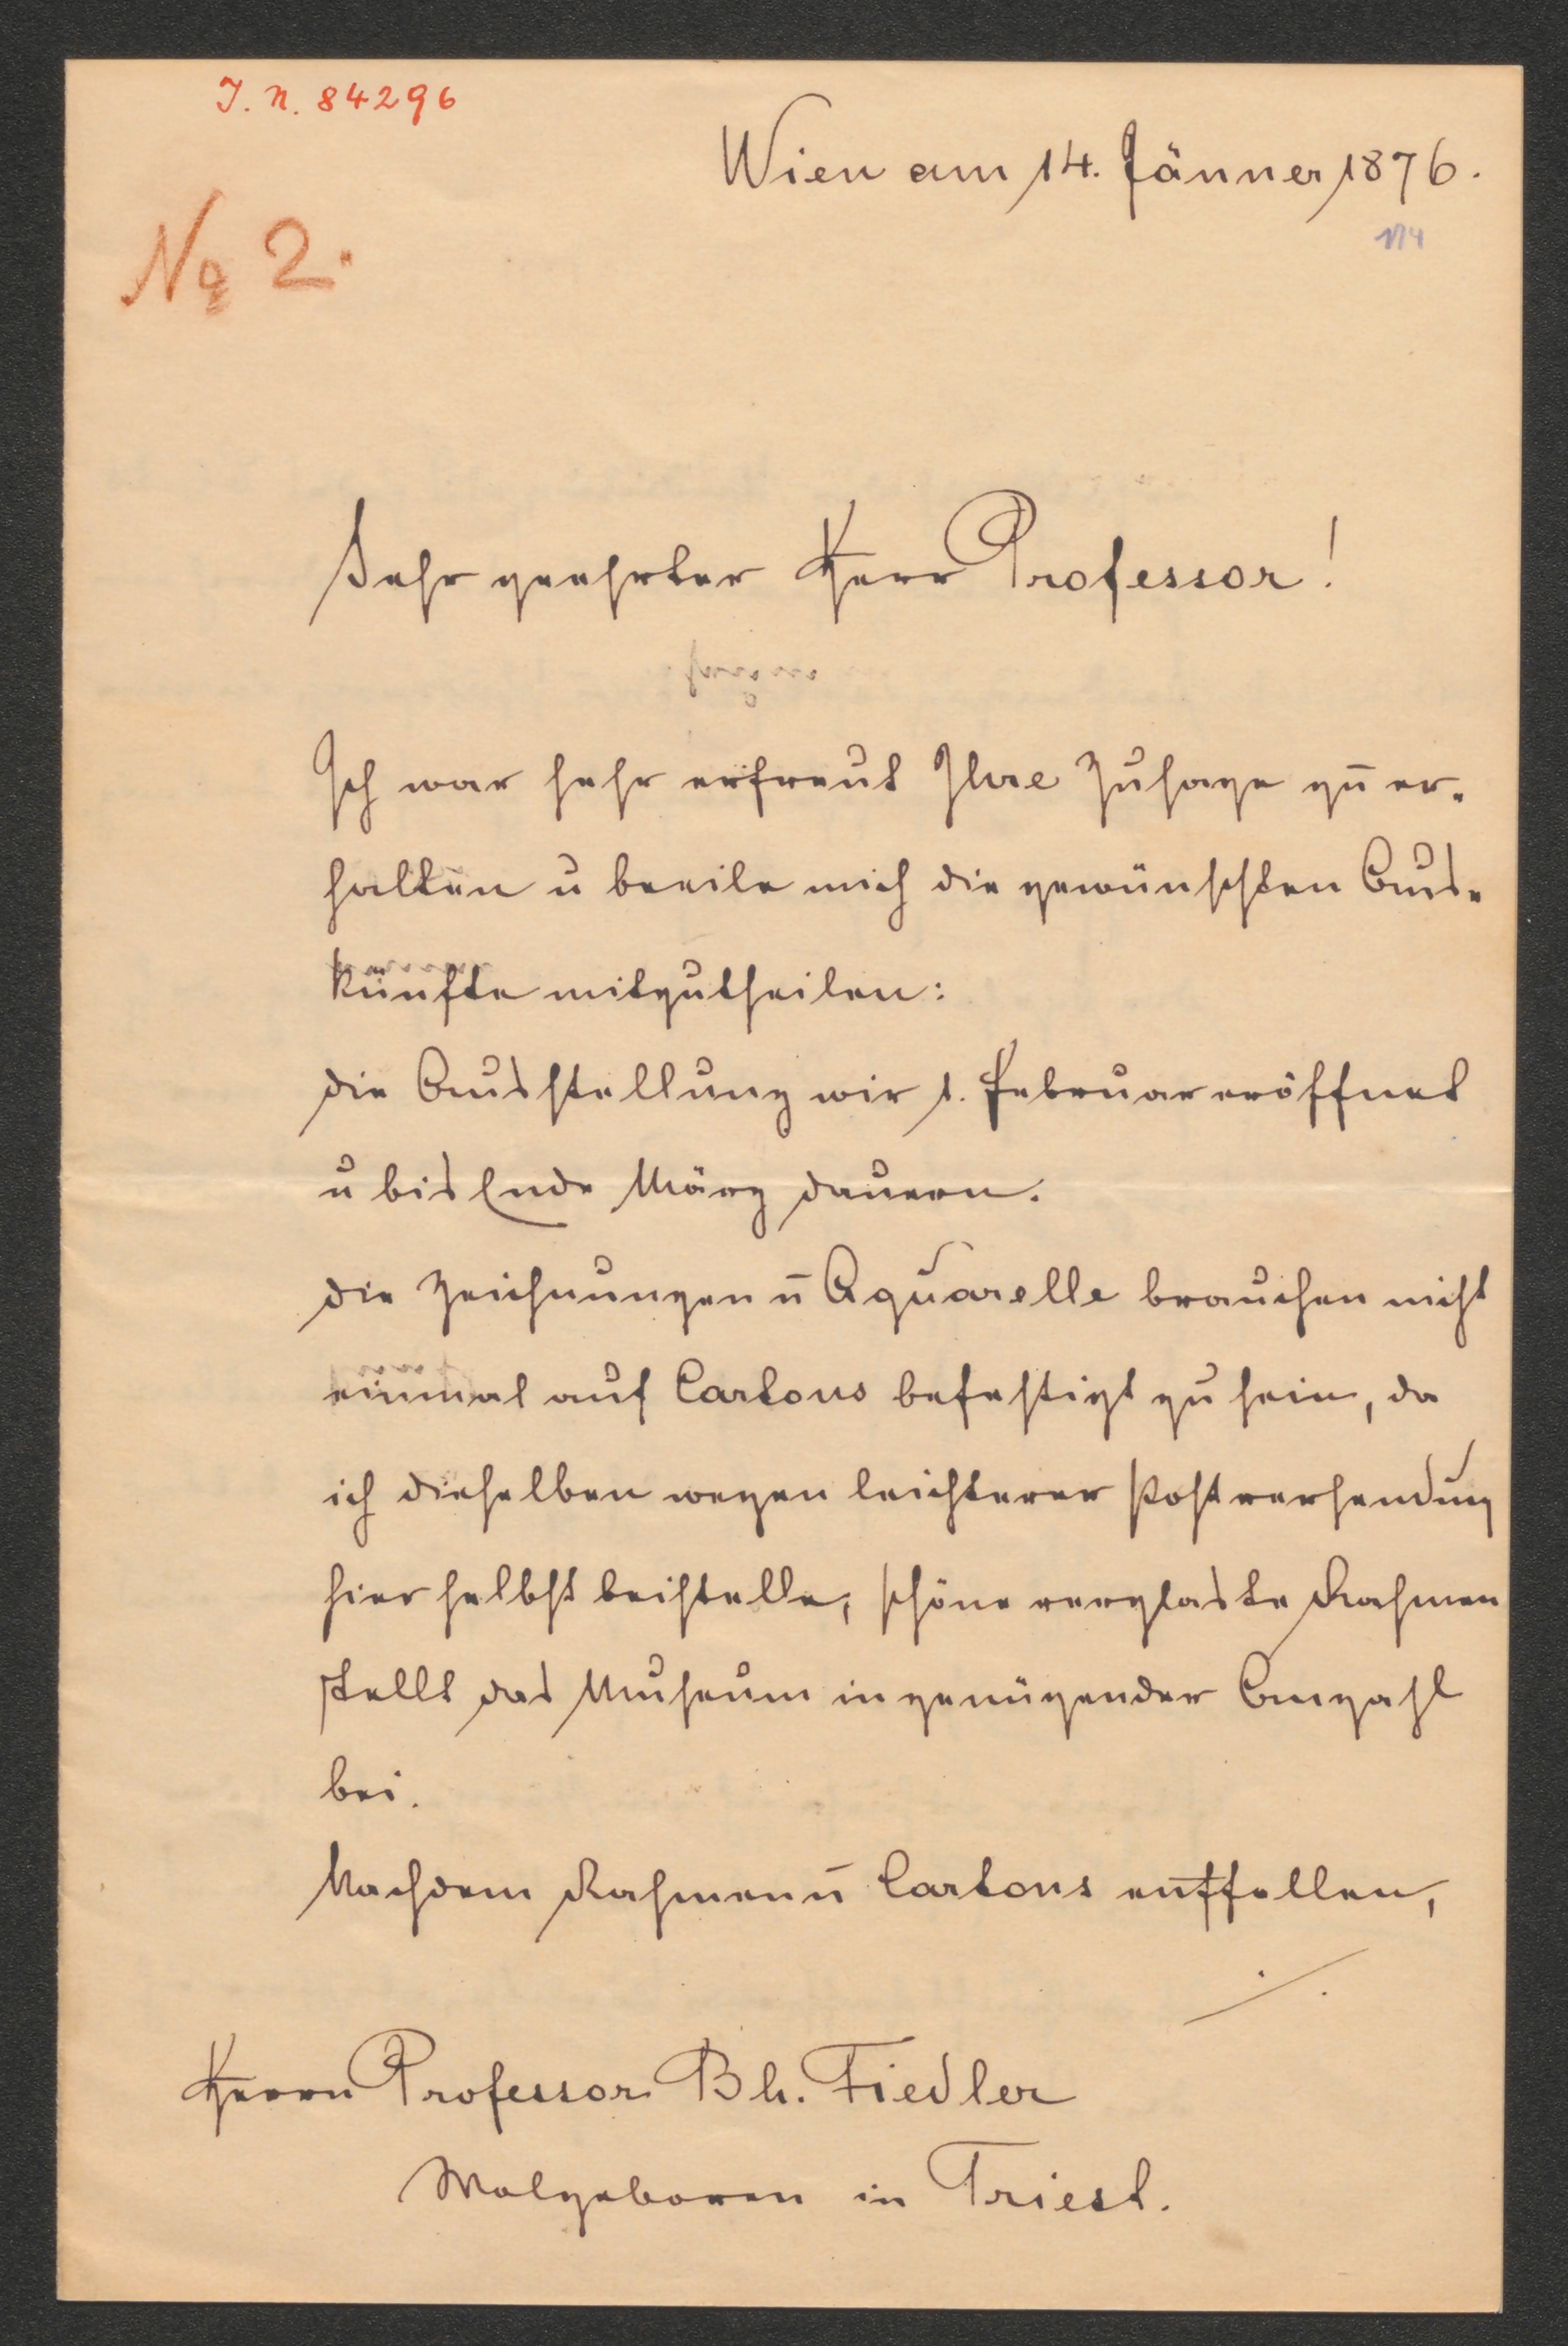 J. N. 84296
Wien am 14. Jänner 1876.
No 2.
Sehr geehrter Herr Professor!
Ich war sehr erfreut Ihre Zusage zu er-
halten u beeile mich die gewünschten Aus-
künfte mitzutheilen:
die Ausstellung wir 1. Februar eröffnet
u bis Ende März dauern.
die Zeichnungen u Aquarelle brauchen nicht
einmal auf Cartons befestigt zu sein, da
ich dieselben wegen leichterer Postversendung
hier selbst beistelle, schöne verglaste Rahmen
stellt das Museum in genügender Anzahl
bei.
Nachdem Rahmen u Cartons entfallen,
./.
Herrn Professor Bh. Fiedler
Wolgeboren in Triest.